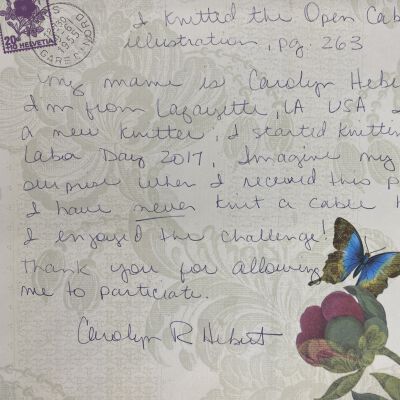 I knitted the Open Cab
illustration, pg. 263
my name is Carolyn Hebe
I'm from Lafayette, LA USA
a new knitter, I started knittin
Labor Day 2017, Imagine my
surprise when I received this p
I have never knit a cable
I enjoyed the challenge!
Thank you for allowing
me to particiate.
Carolyn R Hebert
20c
HELVETIA